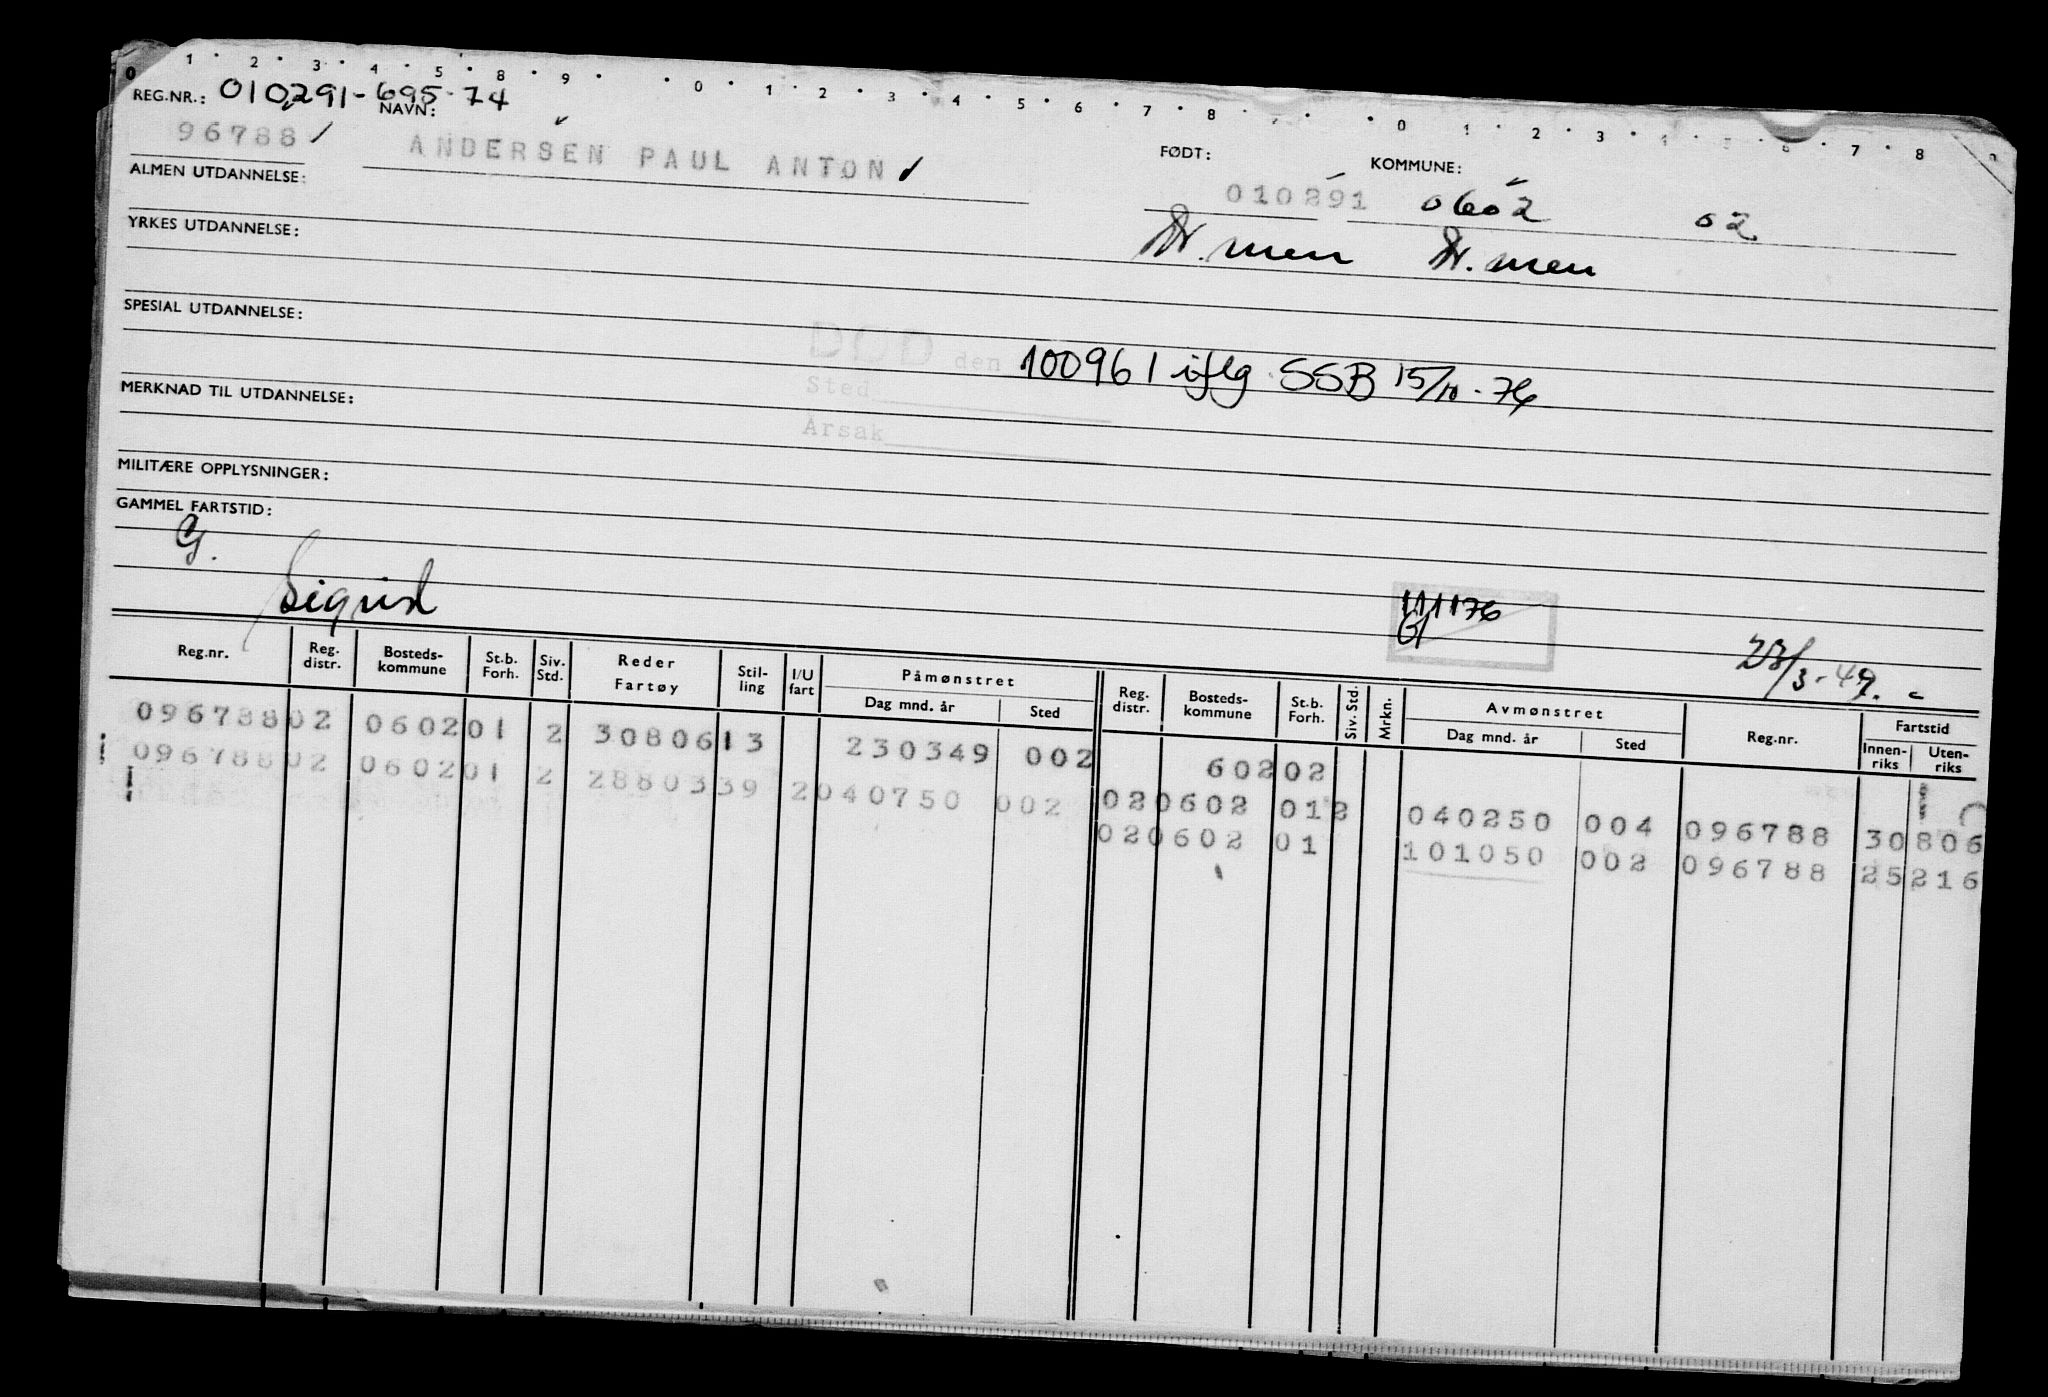 0 1 2 3 4 5 8 9 0 1 2 3 4 5 6 7 8 0 1 2 3 7 8
REG.NR.: 010291-695-74
NAVN:
96788 ANDERSEN PAUL ANTON
FØDT: KOMMUNE:
010291 0602 02
ALMEN UTDANNELSE:
Dr. men Dr. men
YRKES UTDANNELSE:
SPESIAL UTDANNELSE:
DØD den 100961 iflg SSB 15/10-76
Sted
MERKNAD TIL UTDANNELSE:
Årsak
MILITÆRE OPPLYSNINGER:
GAMMEL FARTSTID:
G.
Sigrid
111176
23/3-49.
Reg.nr. Reg. distr. Bosteds-kommune St.b. Forh. Siv. Std. Reder Fartøy Stil-ling I/U fart Påmønstret Dag mnd. år Sted Reg. distr. Bosteds-kommune St.b. Forh. Siv. Std. Mrkn. Avmønstret Dag mnd. år Sted Reg.nr. Fartstid Innen-riks Uten-riks
096788 02 0602 01 2 30806 13 230349 002 602 02
096788 02 0602 01 2 28803 39 2 040750 002 02 0602 01 2 040250 004 096788 30 806
02 0602 01 101050 002 096788 25 216